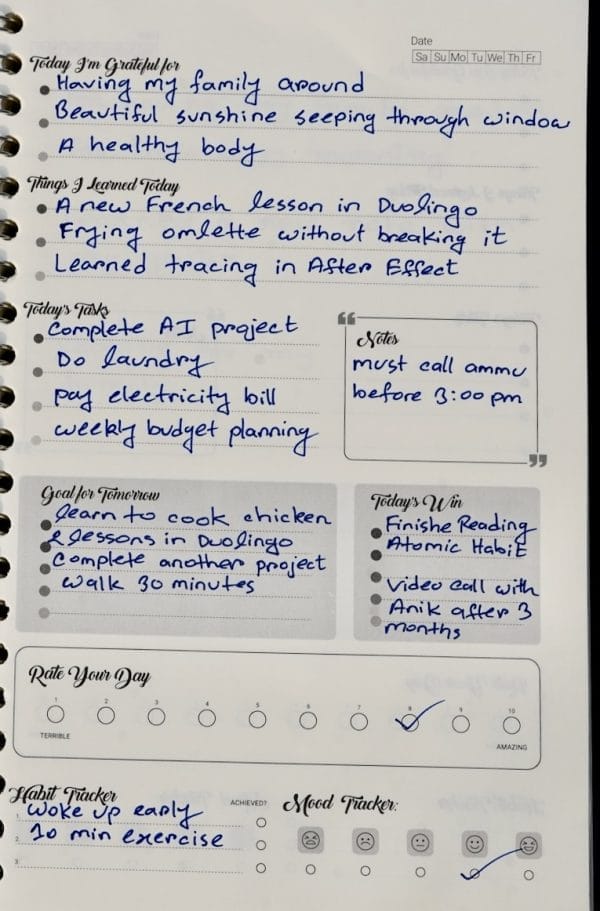 Date
Sa Su Mo Tu We Th Fr
Today I'm Grateful for
Having my family around
Beautiful sunshine seeping through window
A healthy body
Things I Learned Today
A new French lesson in Duolingo
Frying omlette without breaking it
Learned tracing in After Effect
Today's Tasks
Complete AI project
Do laundry
pay electricity bill
weekly budget planning
Notes
must call ammu
before 3:00 pm
Goal for Tomorrow
learn to cook chicken
2 lessons in Duolingo
Complete another project
walk 30 minutes
Today's Win
Finishe Reading
Atomic Habit
Video call with
Anik after 3
months
Rate Your Day
1 2 3 4 5 6 7 8 9 10
TERRIBLE
AMAZING
Habit Tracker
ACHIEVED?
1. woke up early
2. 10 min exercise
3.
Mood Tracker: